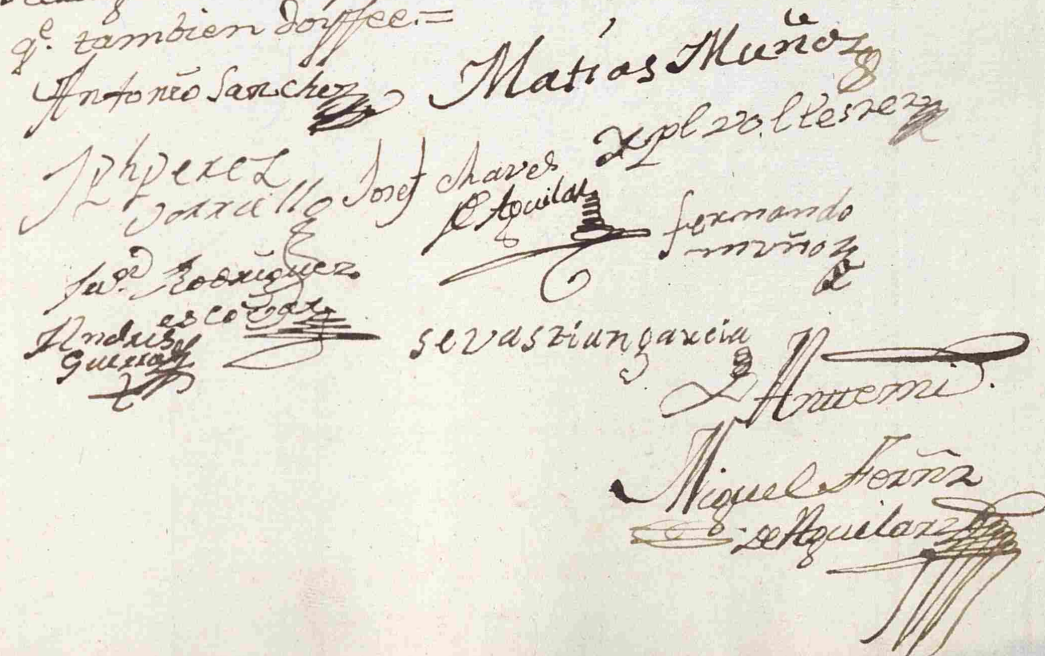 qe. tambien doi ffee.=
Antonio Sanchez
Matias Muñoz
Xpl vallesrez
Jph perez
Josef chaves
de Aguilar
fernando
muñoz
Juo. Rodriguez
escovar
Andres
Guerra
sevastian garcia
Anttemi
Miguel Fernz
de Aguilar